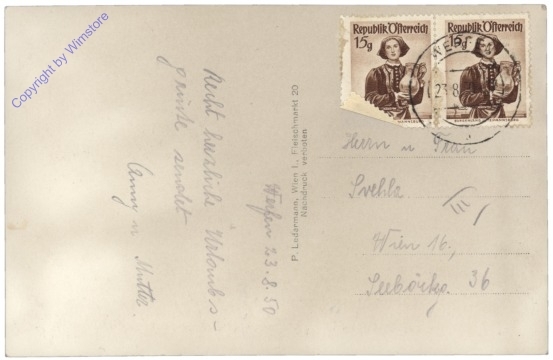 Copyright by Wimstore
Republik Österreich
15g
Republik Österreich
15g
23.8
Werfen 23.8.50
Recht herzliche Urlaubs-
grüße sendet
Anny u. Mutter
P. Ledermann, Wien I., Fleischmarkt 20
Nachdruck verboten
Herrn u Frau
Svehla
III/
Wien 16.,
36